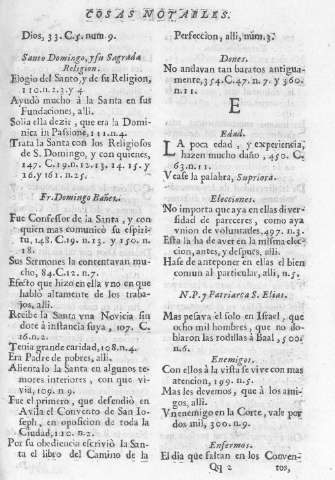 COSAS NOTABLES.
Dios, 33. C. 5. num. 9.
Santo Domingo, y su Sagrada
Religion.
Elogio del Santo, y de su Religion,
110. n. 2. 3. y 4
Ayudò mucho à la Santa en sus
Fundaciones, alli.
Solia ella dezir, que era la Domi-
nica in Passione, 111. n. 4.
Trata la Santa con los Religiosos
de S. Domingo, y con quienes,
147. C. 19. n. 12. 13. 14. 15. y
16. y 161. n. 25.
Fr. Domingo Bañez.
Fue Confessor de la Santa, y con
quien mas comunicò su espiri-
tu, 148. C. 19. n. 13. y 150. n.
18.
Sus Sermones la contentavan mu-
cho, 84. C. 12. n. 7.
Efecto que hizo en ella vno en que
hablò altamente de los traba-
jos, alli.
Recibe la Santa vna Novicia sin
dote à instancia suya, 107. C.
16. n. 2.
Tenia grande caridad, 108. n. 4.
Era Padre de pobres, alli.
Alienta lo la Santa en algunos te-
mores interiores, con que vi-
via, 109. n. 9.
Fue el primero, que defendiò en
Avila el Convento de San Io-
seph, en oposicion de toda la
Ciudad, 110. n. 2.
Por su obediencia escriviò la San-
ta el libro del Camino de la
Perfeccion, alli, num. 3.
Dones.
No andavan tan baratos antigua-
mente, 354. C. 47. n. 7. y 360.
n. 11.
E
Edad.
LA poca edad, y experiencia,
hazen mucho daño, 450. C.
63. n. 11.
Vease la palabra, Supriora.
Elecciones.
No importa que aya en ellas diver-
sidad de pareceres, como aya
vnion de voluntades, 497. n. 3.
Esta la ha de aver en la misma elec-
cion, antes, y despues, alli.
Hase de anteponer en ellas el bien
comun al particular, alli, n. 5.
N. P. y Patriarca S. Elias.
Mas pesava èl solo en Israel, que
ocho mil hombres, que no do-
blaron las rodillas à Baal, 500.
n. 6.
Enemigos.
Con ellos à la vista se vive con mas
atencion, 199. n. 5.
Mas les devemos, que à los ami-
gos, alli.
Vn enemigo en la Corte, vale por
dos mil, 300. n. 9.
Enfermos.
El dia que faltan en los Conven-
Qq 2 tos,